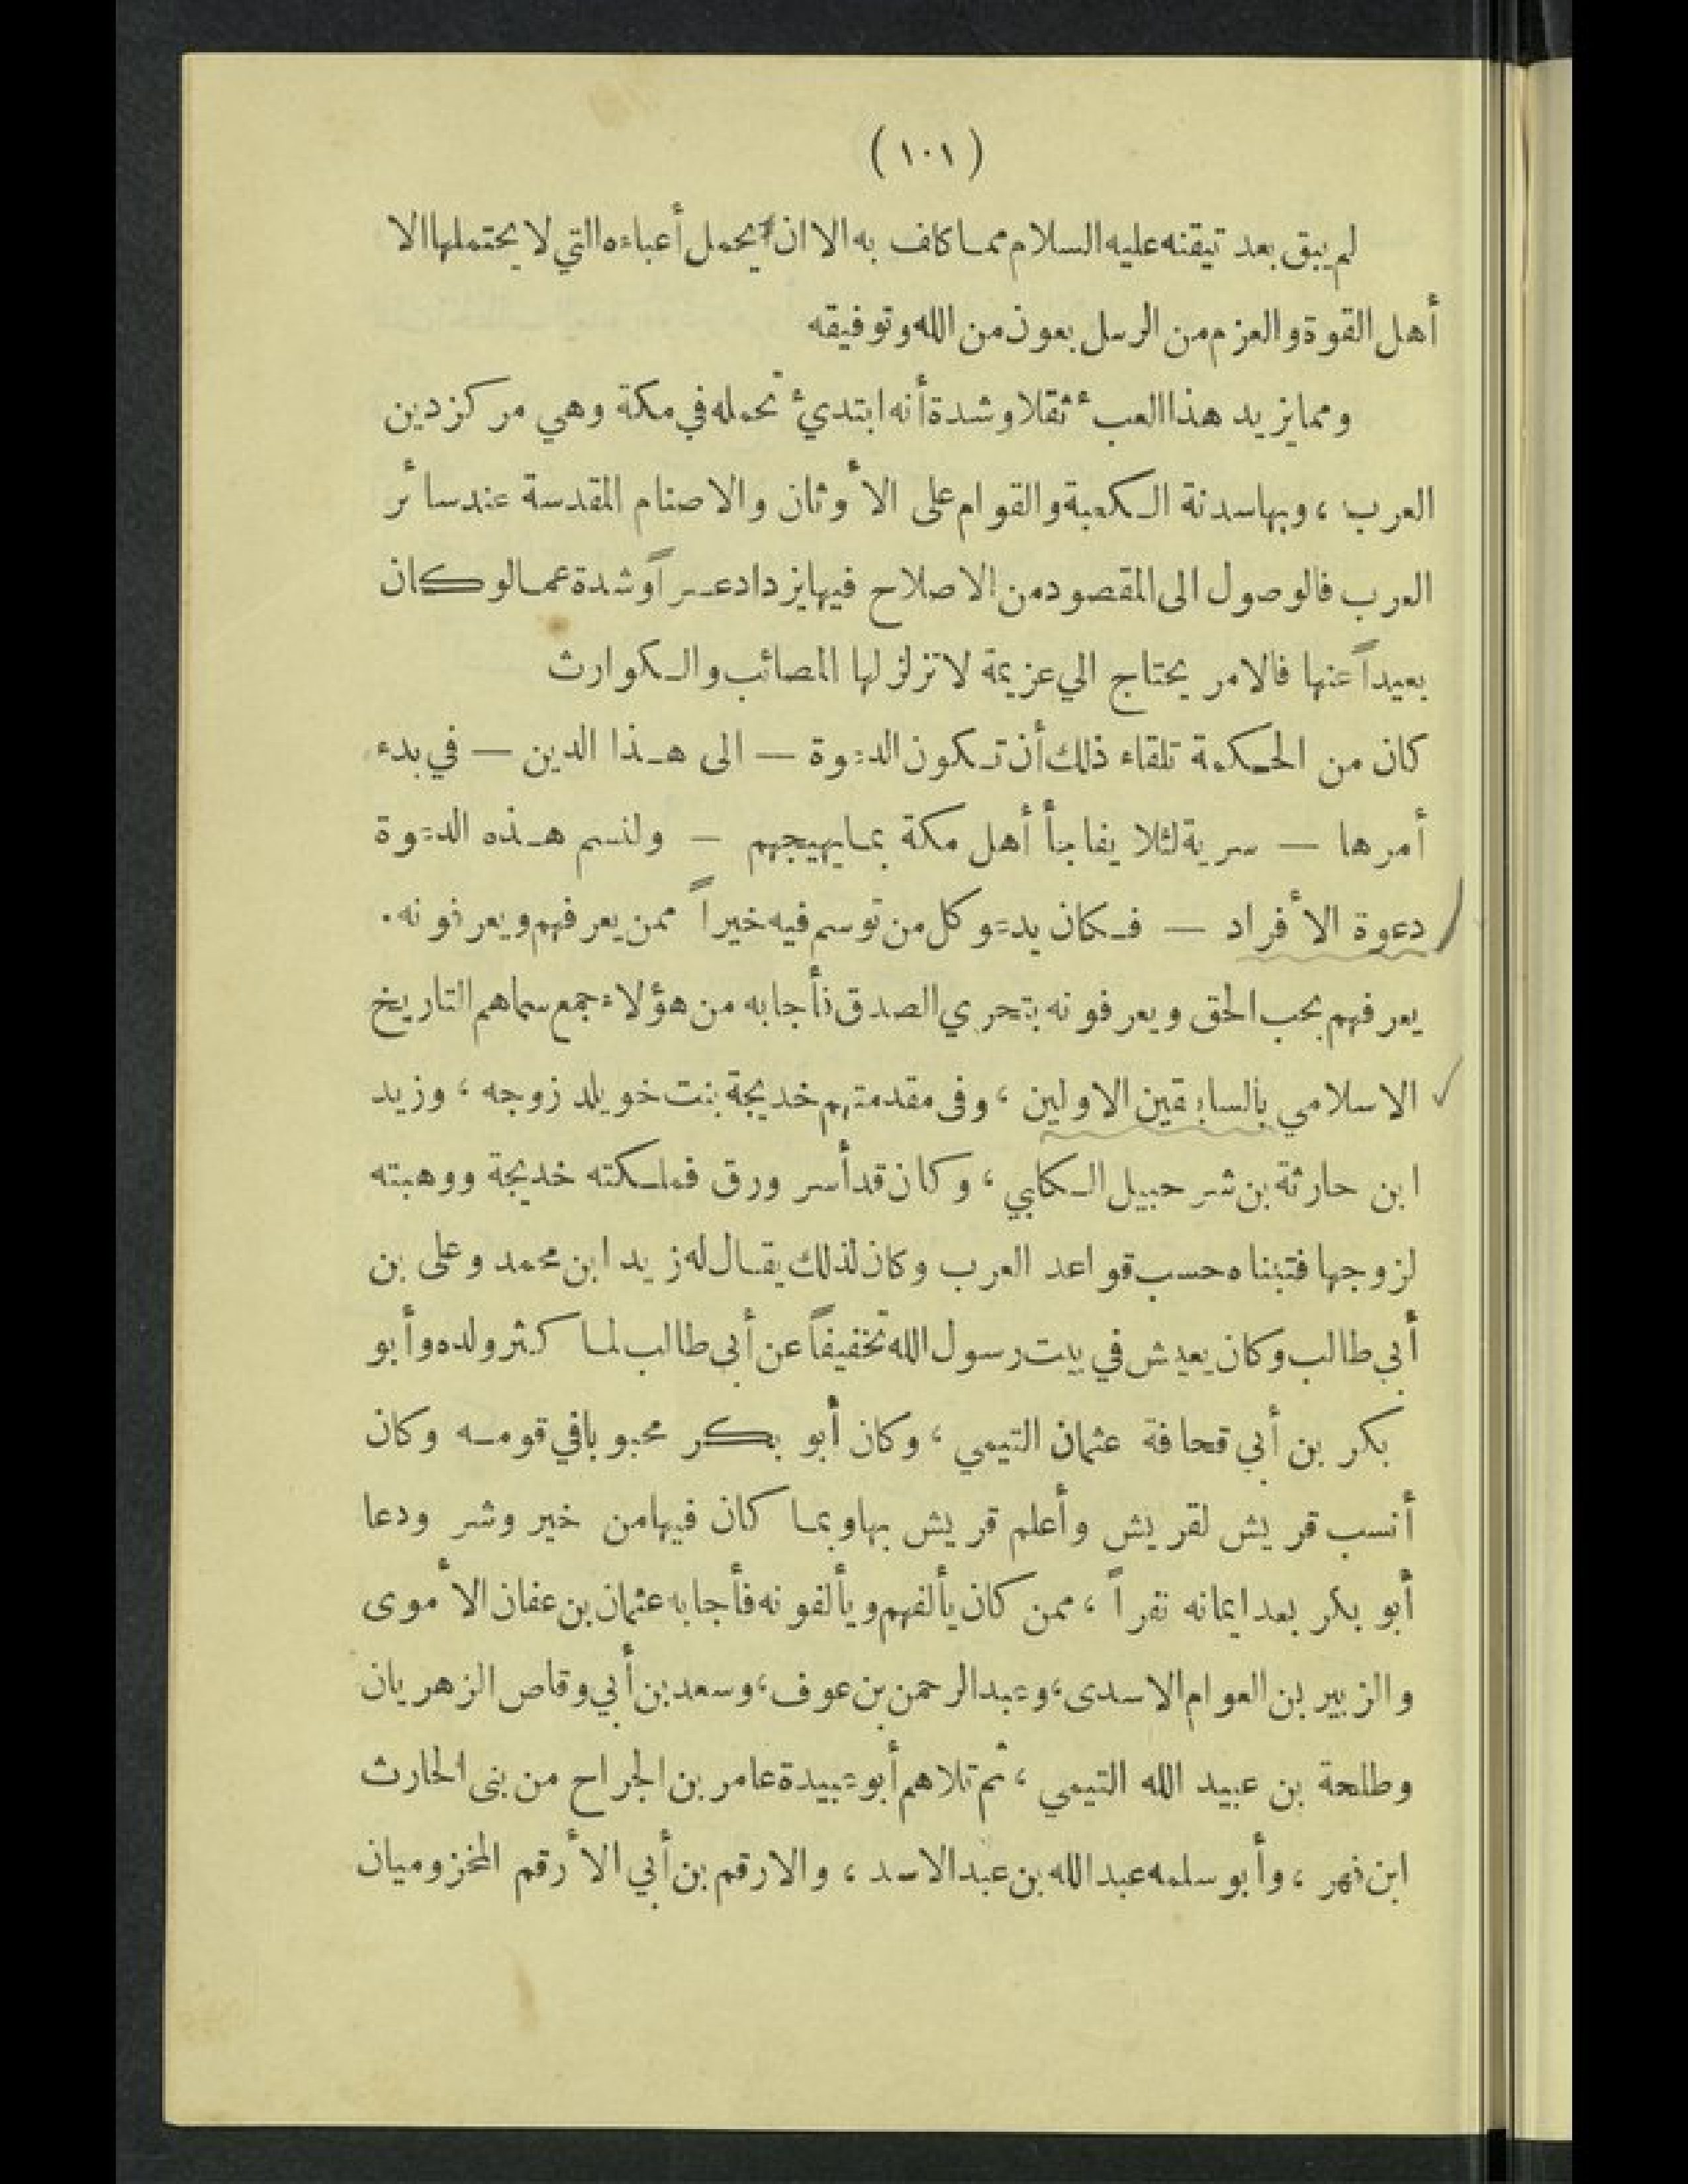 (١٠١)
لم يبق بعد تيقنه عليه السلام مما كلف به الا ان يحمل أعباءه التي لا يحتملها الا
أهل القوة والعزم من الرسل بعون من الله وتوفيقه
ومما يزيد هذا العبء ثقلا وشدة أنه ابتدئ تحمله في مكة وهي مركز دين
العرب ، وبها سدنة الكعبة والقوام على الأوثان والاصنام المقدسة عند سائر
العرب فالوصول الى المقصود من الاصلاح فيها يزداد عسراً وشدة عما لو كان
بعيداً عنها فالامر يحتاج الي عزيمة لا تزلزلها المصائب والكوارث
كان من الحكمة تلقاء ذلك أن تكون الدعوة — الى هذا الدين — في بدء
أمرها — سرية لئلا يفاجأ أهل مكة بما يهيجهم — ولنسم هذه الدعوة
دعوة الأفراد — فكان يدعو كل من توسم فيه خيراً ممن يعرفهم ويعرفونه .
يعرفهم بحب الحق ويعرفونه بتحري الصدق فأجابه من هؤلاء جمع سماهم التاريخ
الاسلامي بالسابقين الاولين ، وفى مقدمتهم خديجة بنت خويلد زوجه ، وزيد
ابن حارثة بن شرحبيل الكلبي ، وكان قد أسر ورق فملكته خديجة ووهبته
لزوجها فتبناه حسب قواعد العرب وكان لذلك يقال له زيد ابن محمد وعلى بن
أبي طالب وكان يعيش في بيت رسول الله تخفيفاً عن أبي طالب لما كثر ولده وأبو
بكر بن أبي قحافة عثمان التيمي ، وكان أبو بكر محبوبا في قومه وكان
أنسب قريش لقريش وأعلم قريش بها وبما كان فيها من خير وشر ودعا
أبو بكر بعد ايمانه نفراً ، ممن كان يألفهم ويألفونه فأجابه عثمان بن عفان الأموى
والزبير بن العوام الاسدى ، وعبد الرحمن بن عوف ، وسعد بن أبي وقاص الزهريان
وطلحة بن عبيد الله التيمي ، ثم تلاهم أبو عبيدة عامر بن الجراح من بنى الحارث
ابن فهر ، وأبو سلمه عبد الله بن عبد الاسد ، والارقم بن أبي الأرقم المخزوميان